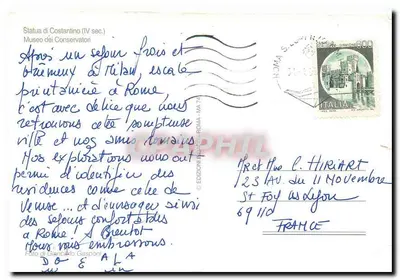 Statua di Costantino (IV sec.)
Museo dei Conservatori
Après un séjour frais et
brumeux à Milan, escale
printanière à Rome,
c'est avec délice que nous
retrouvons cette somptueuse
ville et nos amis romains
Nos explorations nous ont
permi d'identifier des
résidences comme celle de
Venise... et d'envisager ainsi
des séjours confortables
à Rome! A Bientot
Nous vous embrassons.
Foto di Giancarlo Gasponi
ROMA
600
ITALIA
Mr et Mme C. HIRIART
23 AV. du 11 Novembre
St FOY les Lyon
69110
FRANCE